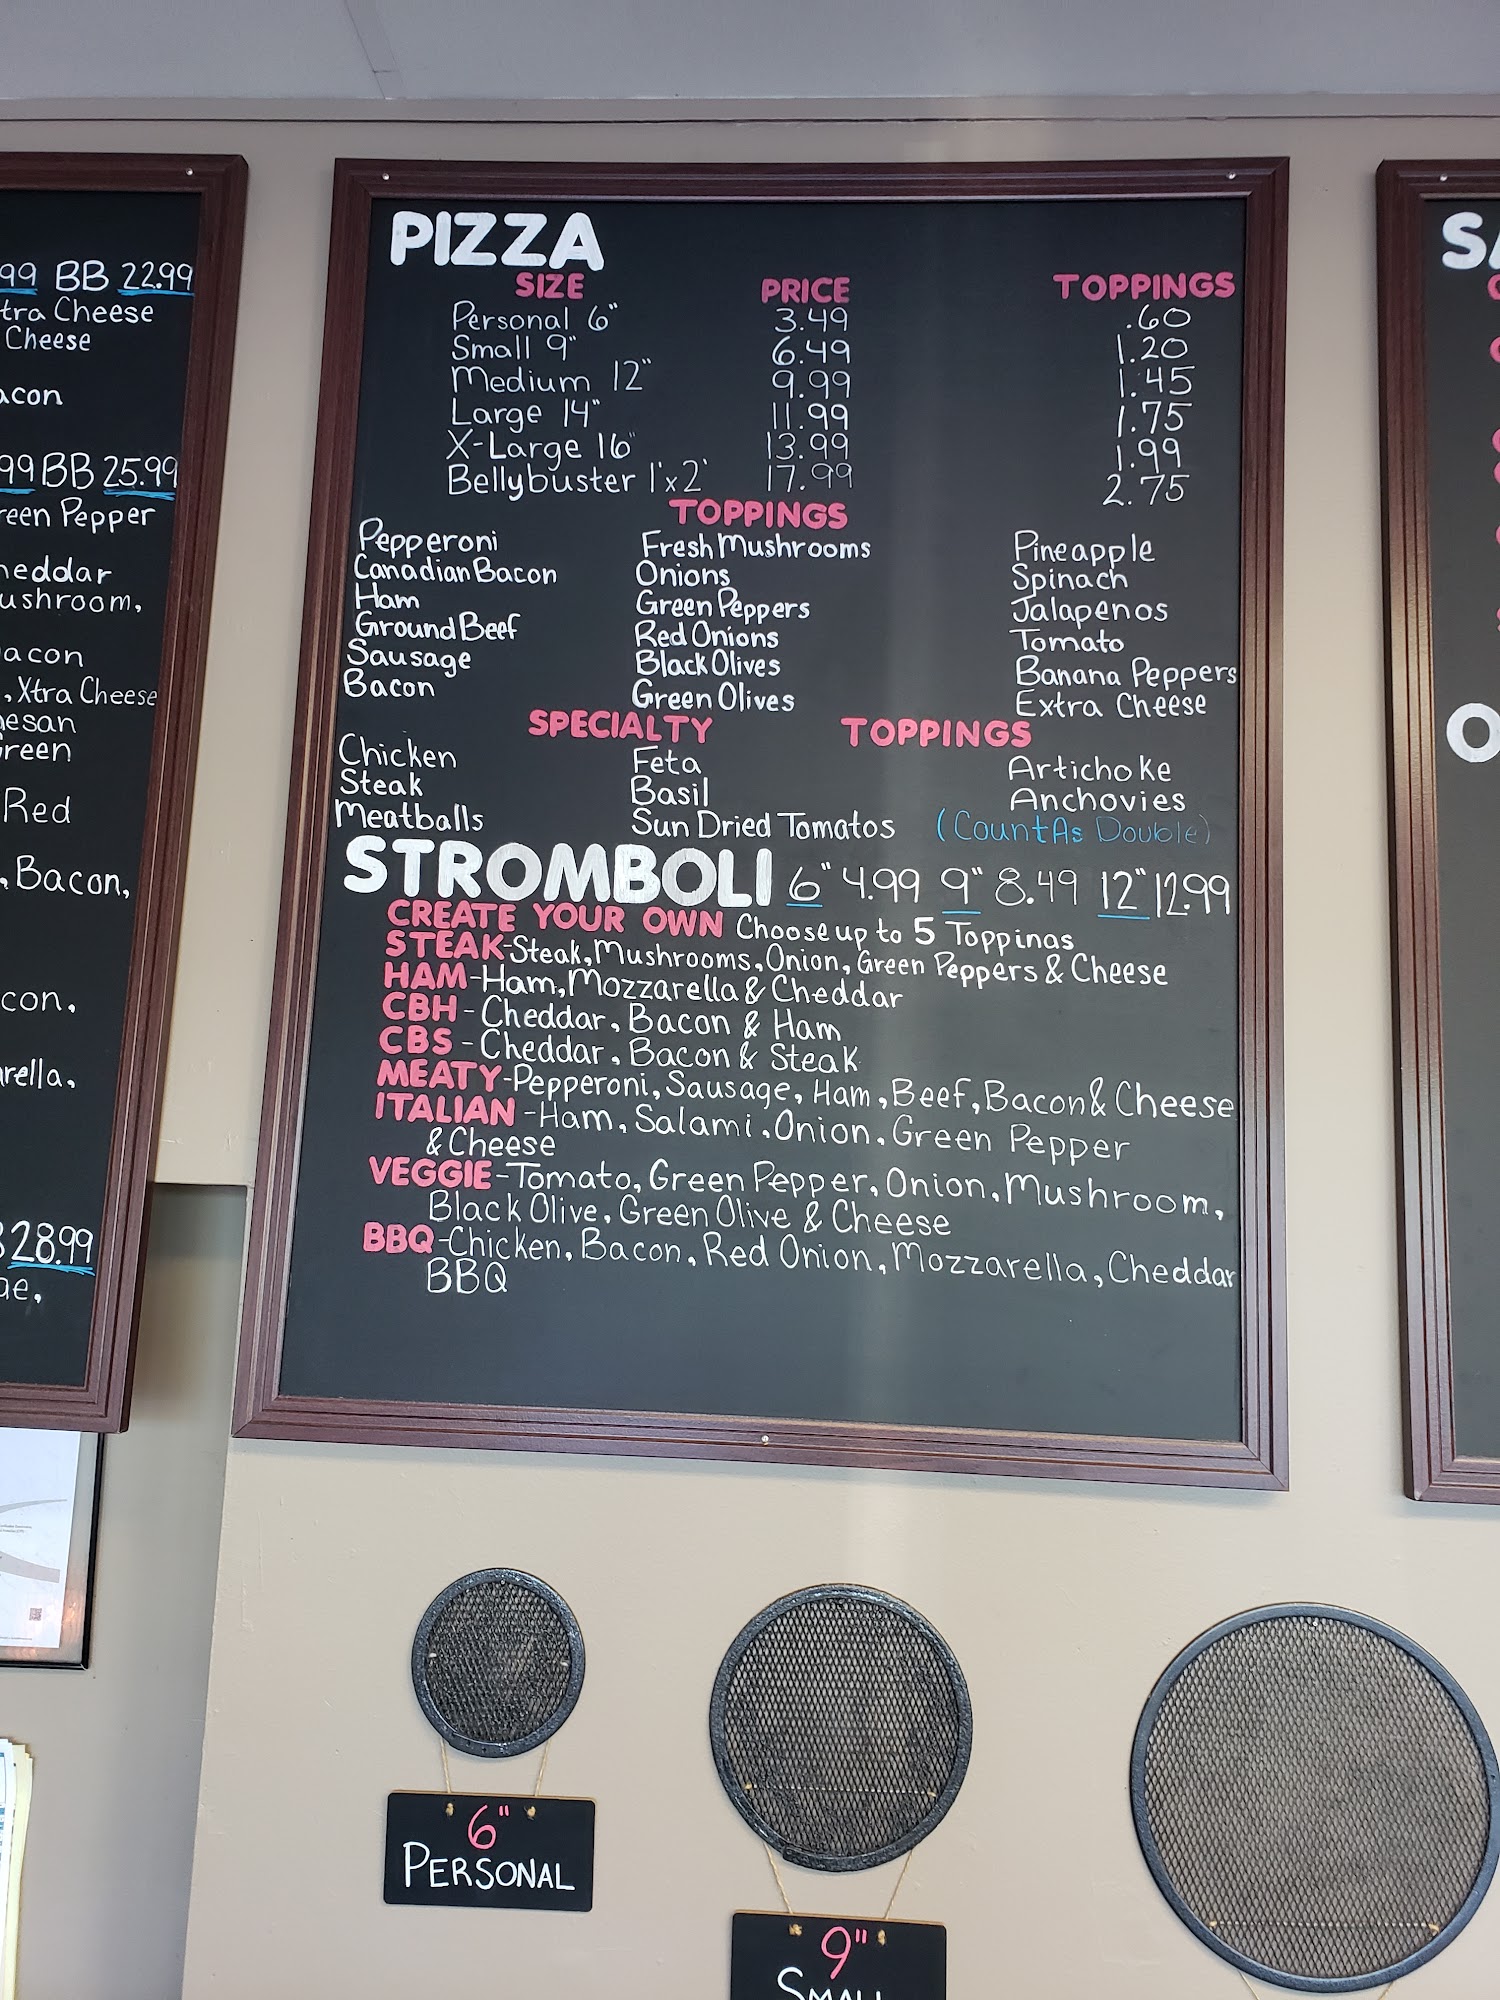 99 BB 22.99
tra Cheese
Cheese
acon
99 BB 25.99
reen Pepper
heddar
ushroom,
acon
, Xtra Cheese
esan
reen
Red
, Bacon,
con,
rella,
28.99
ae,
PIZZA
SIZE PRICE TOPPINGS
Personal 6" 3.49 .60
Small 9" 6.49 1.20
Medium 12" 9.99 1.45
Large 14" 11.99 1.75
X-Large 16" 13.99 1.99
Bellybuster 1'x2' 17.99 2.75
TOPPINGS
Pepperoni Fresh Mushrooms Pineapple
Canadian Bacon Onions Spinach
Ham Green Peppers Jalapenos
Ground Beef Red Onions Tomato
Sausage Black Olives Banana Peppers
Bacon Green Olives Extra Cheese
SPECIALTY TOPPINGS
Chicken Feta Artichoke
Steak Basil Anchovies
Meatballs Sun Dried Tomatos (Count As Double)
STROMBOLI 6" 4.99 9" 8.49 12" 12.99
CREATE YOUR OWN Choose up to 5 Toppings
STEAK-Steak, Mushrooms, Onion, Green Peppers & Cheese
HAM-Ham, Mozzarella & Cheddar
CBH - Cheddar, Bacon & Ham
CBS - Cheddar, Bacon & Steak
MEATY-Pepperoni, Sausage, Ham, Beef, Bacon & Cheese
ITALIAN -Ham, Salami, Onion, Green Pepper
& Cheese
VEGGIE-Tomato, Green Pepper, Onion, Mushroom,
Black Olive, Green Olive & Cheese
BBQ-Chicken, Bacon, Red Onion, Mozzarella, Cheddar
BBQ
SA
O
6"
PERSONAL
9"
SMALL